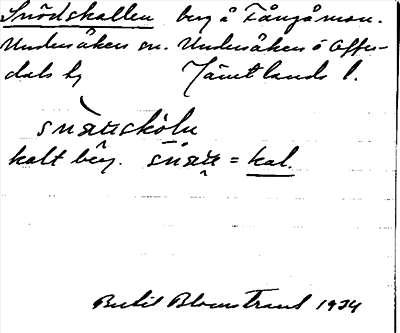 Snödskallen berg å Fångåmon.
Undersåkers sn. Undersåkers o Offer-
dals tg Jämtlands l.
snäuskòln
kalt bêrg. snäu = kal.
Bertil Blomstrand 1934